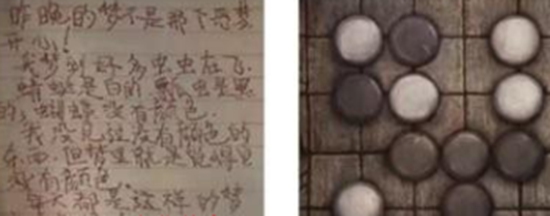 昨晚的梦不是那个恶梦
开心!
我梦到好多虫虫在飞.
蜻蜓是白的 瓢虫是黑
的, 蝴蝶没有颜色.
我没见过没有颜色的
东西. 但梦里就是觉得
没有颜色.
每天都是这样的梦